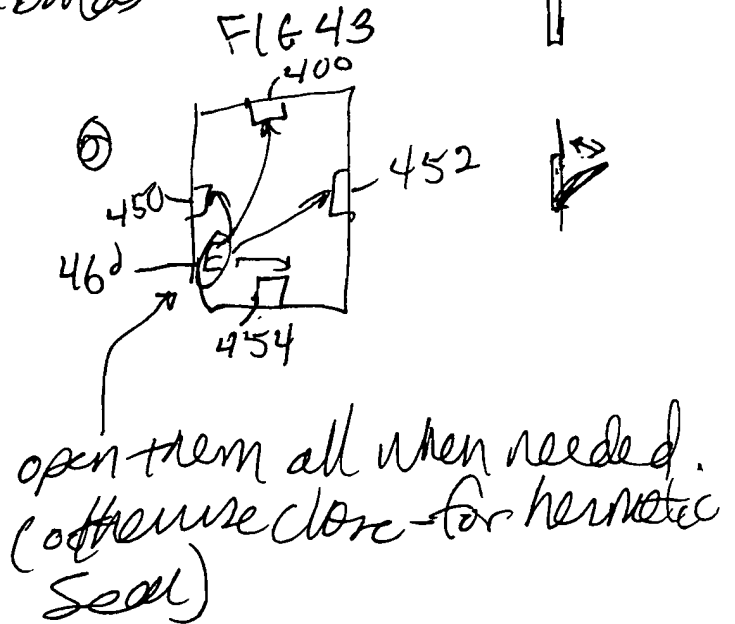 FIG 43
400
6
452
450
46d
E
454
open them all when needed.
(otherwise close for hermetic
seal)